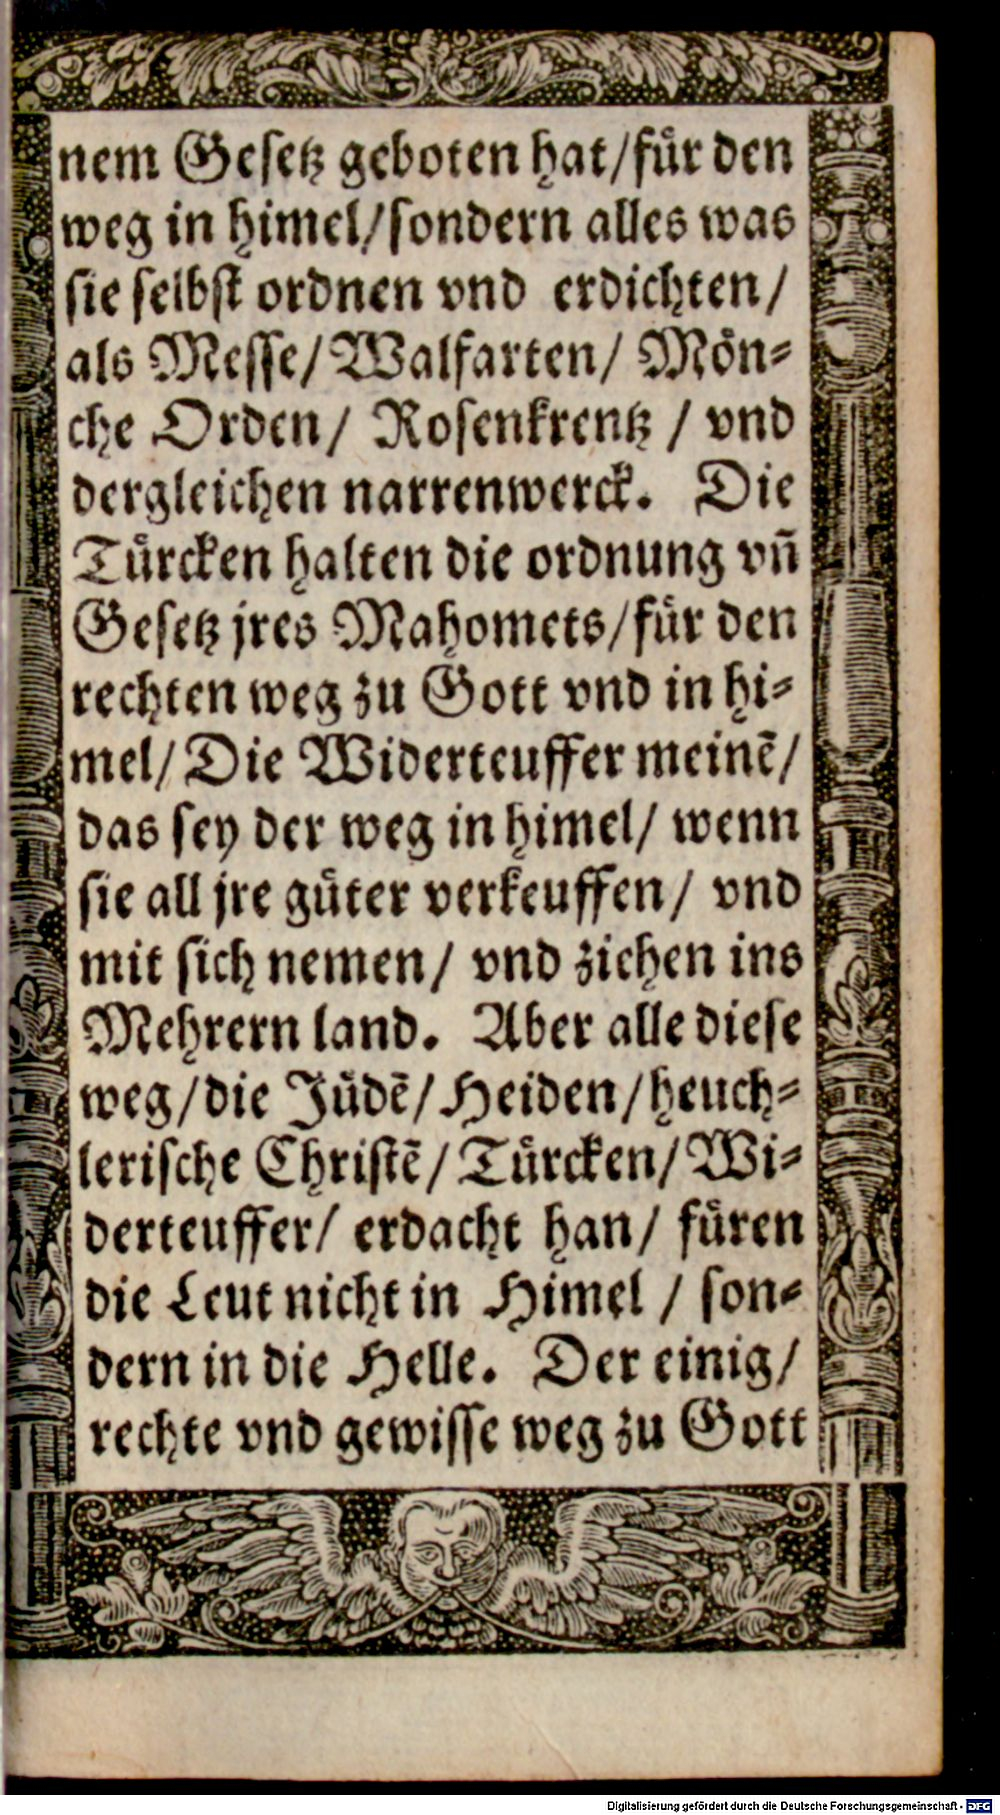 nem Gesetz geboten hat/für den
weg in himel/sondern alles was
sie selbst ordnen vnd erdichten/
als Messe/Walfarten/ Mön⸗
che Orden/ Rosenkrentz / vnd
dergleichen narrenwerck. Die
Türcken halten die ordnung vn̄
Gesetz jres Mahomets/für den
rechten weg zu Gott vnd in hi⸗
mel/Die Widerteuffer meinē/
das sey der weg in himel/ wenn
sie all jre güter verkeuffen/ vnd
mit sich nemen/ vnd ziehen ins
Mehrern land. Aber alle diese
weg/die Jüdē/Heiden/heuch⸗
lerische Christē/Türcken/Wi⸗
derteuffer/ erdacht han/ füren
die Leut nicht in Himel / son⸗
dern in die Helle. Der einig/
rechte vnd gewisse weg zu Gott
Digitalisierung gefördert durch die Deutsche Forschungsgemeinschaft - DFG